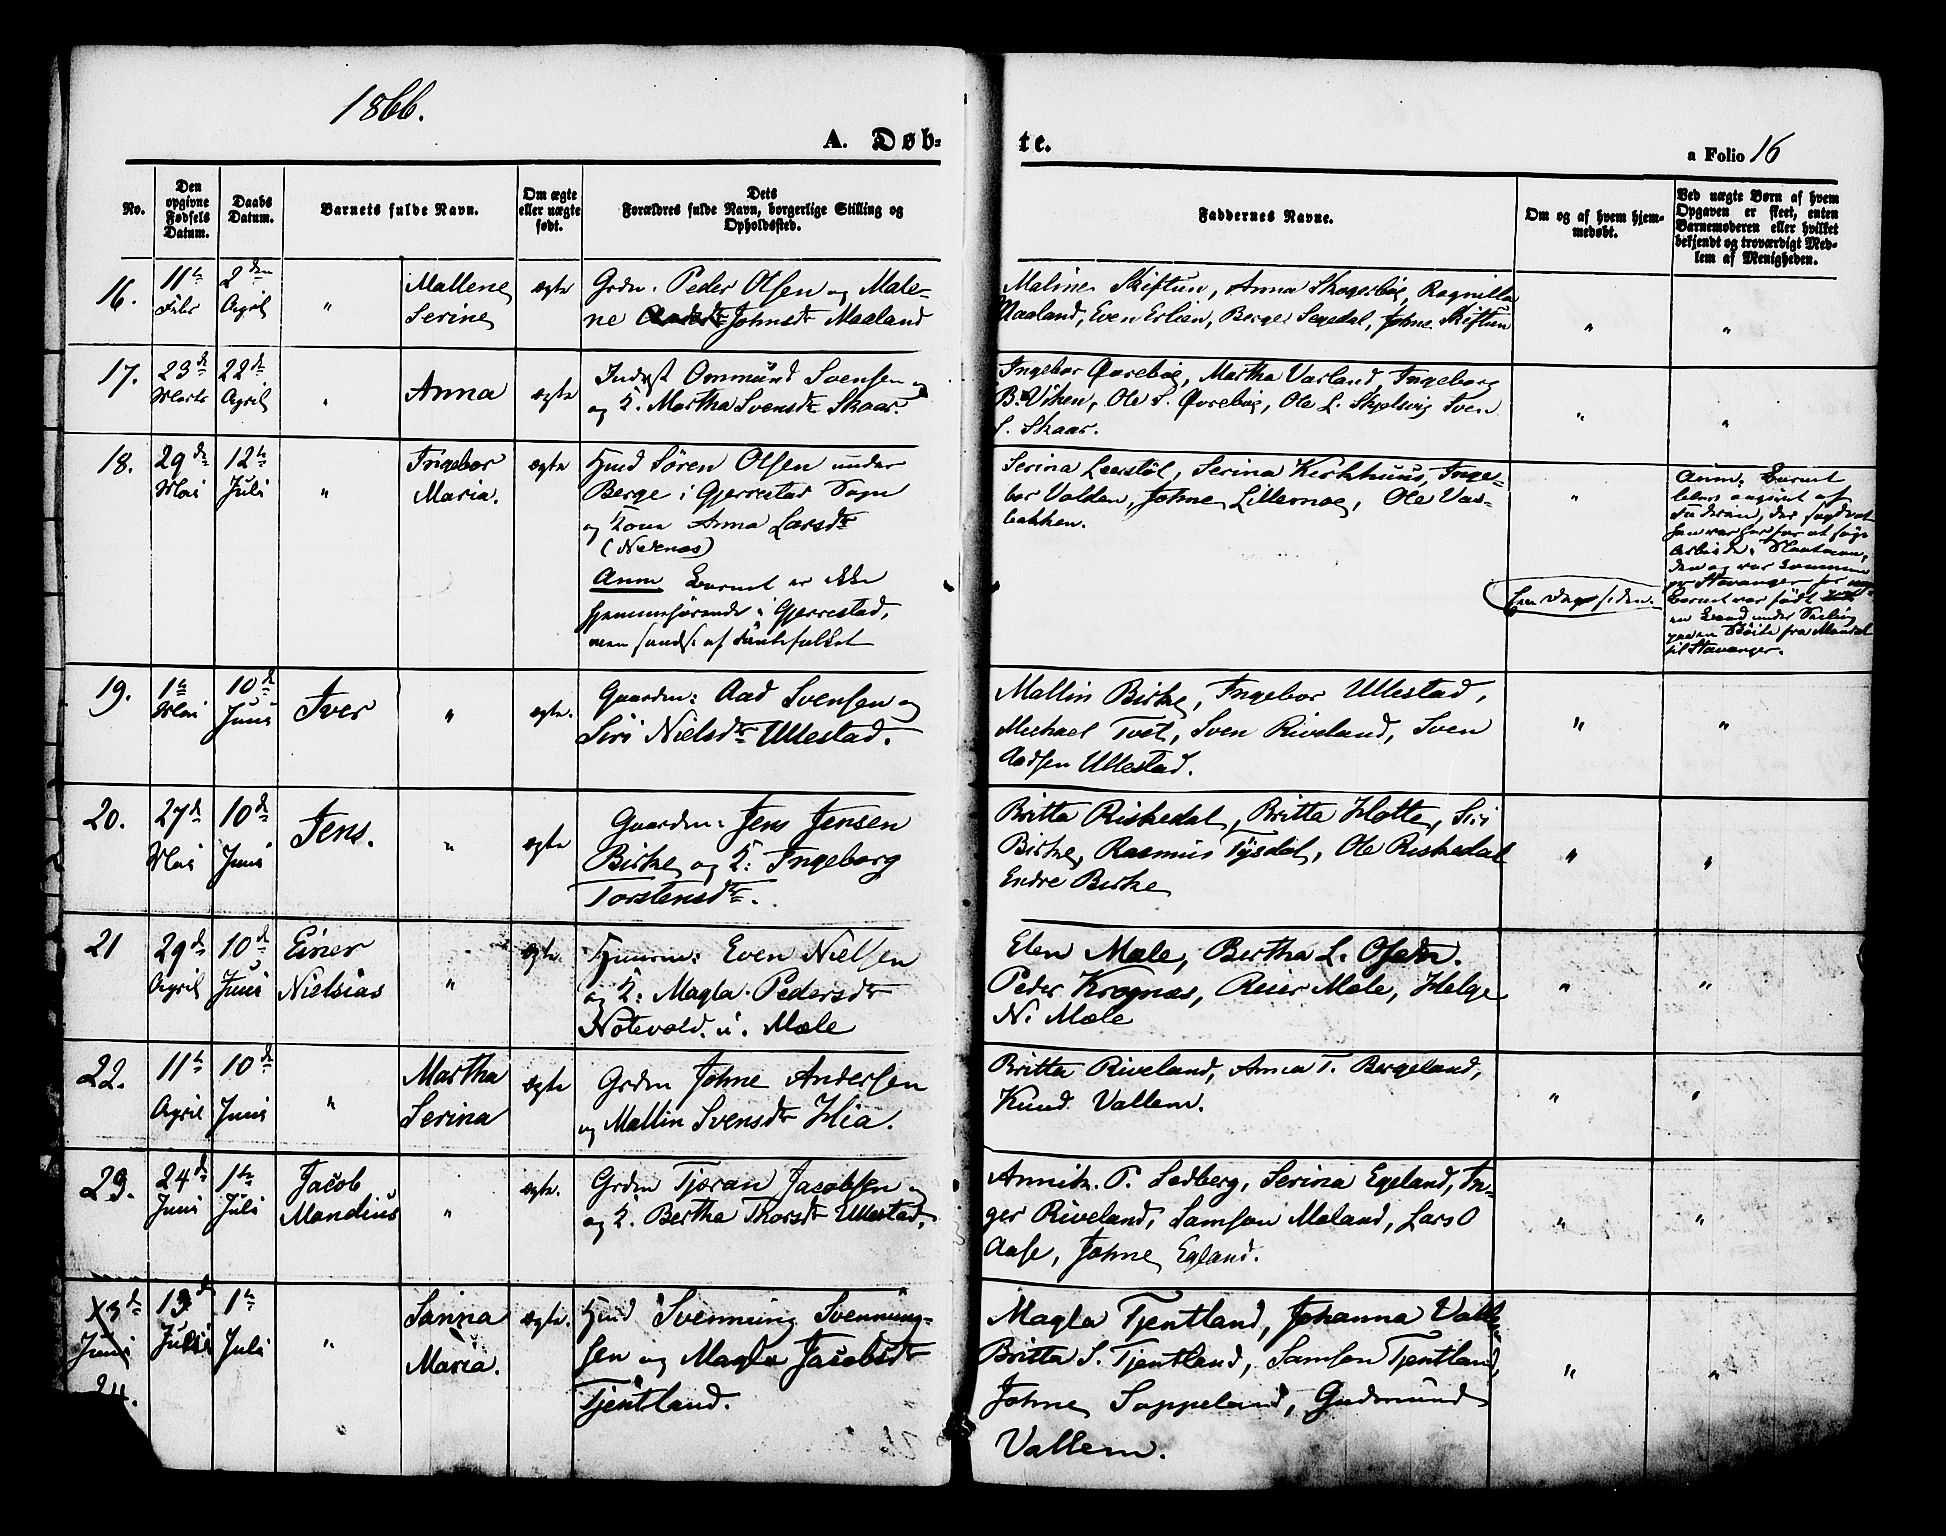 1866.
A. Døb-
te.
a Folio 16
No.
Den
opgivne
Fødsels
Datum.
Daabs
Datum.
Barnets fulde Navn.
Om ægte
eller uægte
født.
Dets
Forældres fulde Navn, borgerlige Stilling og
Opholdssted.
Faddernes Navne.
Om og af hvem hjem-
medøbt.
Ved uægte Børn af hvem
Opgaven er skeet, enten
Barnemoderen eller hvilket
bekjendt og troværdigt Med-
lem af Menigheden.
16.
11te
Febr
2den
April
"
Mallene
Serine
ægte
Grdm. Peder Olsen og Male-
ne Johnsdtr Maaland
Maline Skiftun, Anna Skogerbøe, Ragnilla
Maaland, Even Erlien, Berge Segedal, Johne Skiftun
"
"
17.
23de
Marts
22de
April
"
Anna
ægte
Inderst Ommund Svensen
og K. Martha Svensdtr Skaar.
Ingebor Øvrebøe, Martha Varland, Ingeborg
B. Viken, Ole S. Øvrebøe, Ole L. Skjelsvig Sven
S. Skaar.
"
"
18.
29de
Mai
12te
Juli
"
Ingebor
Maria.
ægte
Hmd Sören Olsen under
Berge i Gjerrestad Sogn
og Kone Anna Larsdtr
(Nedenæs)
Anm Barnet er ikke
hjemmehørende i Gjerrestad,
men af Fantefolket
Serina Leerstöl, Serina Kirkhuus, Inge-
bor Valden, Johne Lillemoe, Ole Vas-
bakken.
"
Anm. Barnet
blev angivet af
Faderen, der sagde at
han var her for at søge
Arbeide
Stavanger
Barnet var født
under Seiling
fra Mandal
til Stavanger.
19.
1te
Mai
10de
Juni
Iver
"
ægte.
Gaardm: Aad Svensen og
Siri Nielsdtr Ullestad.
Mallin Birke, Ingebor Ullestad,
Michael Tvet, Sven Riveland, Sven
Aadsen Ullestad.
"
"
20.
27de
Mai
10de
Juni
Jens.
"
ægte
Gaardm: Jens Jensen
Birke og K: Ingeborg
Torstensdtr.
Britta Riskedal, Britta Hotte, Siri
Birke, Rasmus Tysdal, Ole Riskedal
Endre Birke
"
"
21
29de
April
10de
Juni
Einer
Nielsias
"
ægte.
Huusm: Even Nielsen
og K: Magla Pedersdtr
Notevold. u. Mæle
Elen Mæle, Bertha L.
Peder Krognæs, Reier Mæle, Helge
N. Mæle
"
"
22.
11te
April
10de
Juni
"
Martha
Serina
ægte
Grdm Johne Andersen
og Mallin Svensdtr Hia.
Britta Riveland, Anna T. Bergeland,
Knud Vallem.
"
"
23.
24de
Juni
1te
Juli
Jacob
Mandius
"
ægte.
Grdm Tjæran Jacobsen
og K. Bertha Thorsdtr Ullestad,
P. Sedberg, Serina Egeland, In-
ger Riveland, Samson Meland, Lars O
Aase, Johne Egland.
"
"
X3de
Juni
24.
13de
Juli
1te
Juli
"
Sanna
Maria.
ægte.
Hmd Svenning Svenning-
sen og Magla Jacobsdtr
Tjentland.
Magla Tjentland, Johanna
Britta S. Tjentland, Samson Tjentland,
Johne Soppeland, Gudmund
Vallem.
"
"